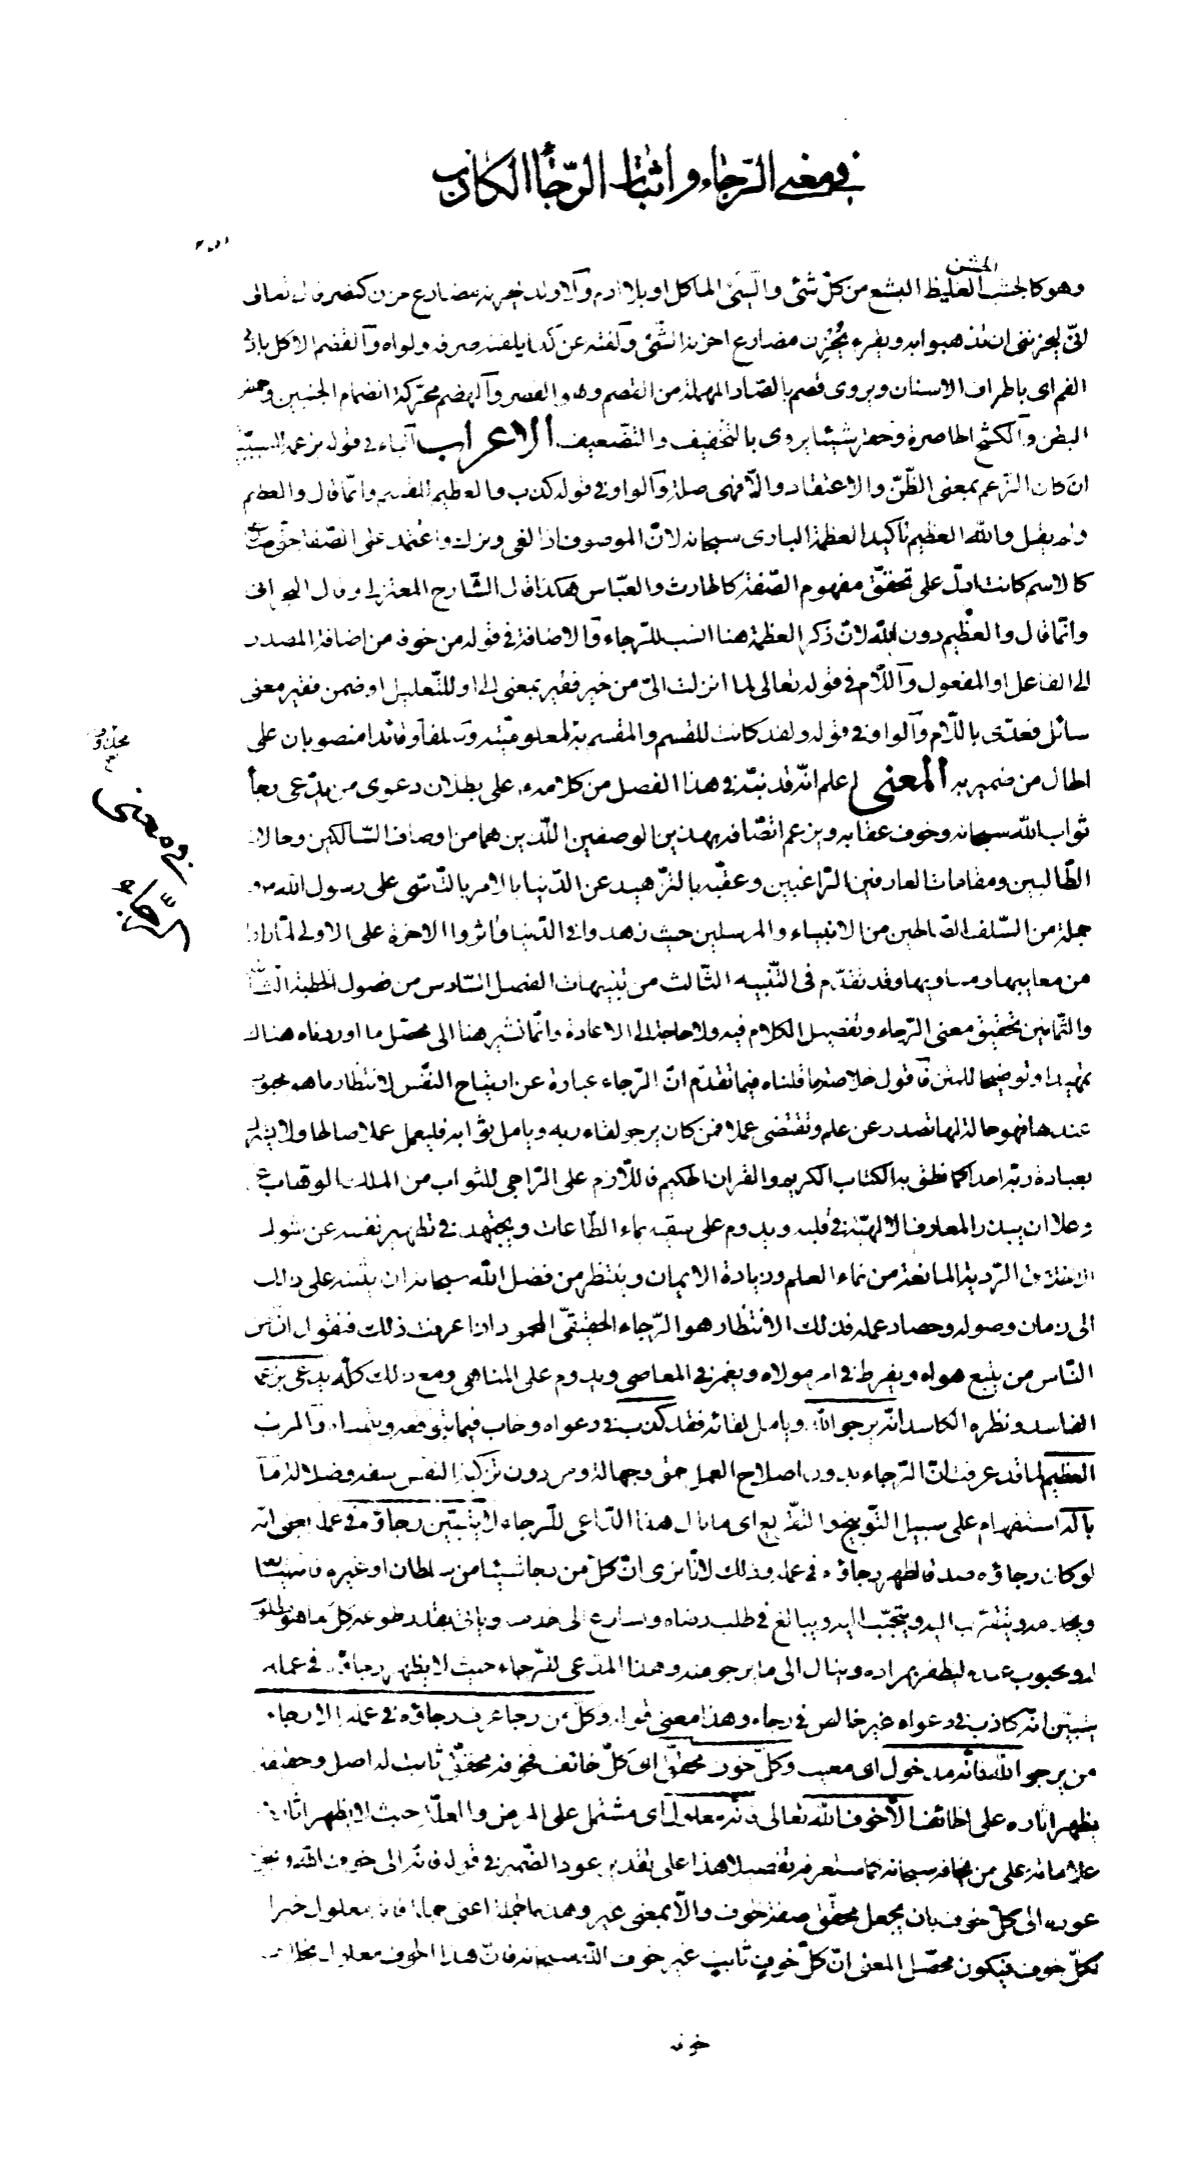 في معنى الرّجاء واثبات الرّجاء الكاذب
الخشن
وهو كالجشب الغليظ البشع من كلّ شئ والسّيّئ المأكل او بلا ادم والاول يحزنه مضارع حزن كنصر قال تعالى
انّي ليحزنني ان تذهبوا به ويقرء يُحْزِن مضارع احزنه الشّئ ولفته عن كذا يلفته صرفه ولواه والقضم الاكل بادنى
الفم اى باطراف الاسنان ويروى قصم بالصّاد المهملة من القصم وهو القصر والهضم محرّكة انضمام الجنبين وخمص
البطن والكشح الخاصرة وحقر شيئا يروى بالتّخفيف والتّضعيف الاعراب الباء في قوله بزعمه للسببيّة
ان كان الزّعم بمعنى الظّنّ والاعتقاد والّا فهى صلة والواو في قوله كذب والعظيم للقسم وانّما قال والعظيم
ولم يقل والله العظيم تأكيدا لعظمة البارى سبحانه لانّ الموصوف اذا القى وترك واعتمد على الصّفة حتّى صارت
كالاسم كانت ادلّ على تحقّق مفهوم الصّفة كالحارث والعبّاس هكذا قال الشّارح المعتزلي وقال البحراني
وانّما قال والعظيم دون الله لانّ ذكر العظمة هنا انسب للرّجاء والاضافة في قوله من خوفه من اضافة المصدر
الى الفاعل او المفعول واللّام في قوله تعالى لما انزلت اليّ من خير فقير بمعنى الى او للتّعليل او ضمن فقير معنى
سائل فعدّى باللّام والواو في قوله ولقد كانت للقسم والمقسم به لمعلوميّته وسلفا وقائدا منصوبان على
الحال من ضمير به المعنى اعلم انّه قد نبّه في هذا الفصل من كلامه على بطلان دعوى من يدّعى رجأ
ثواب الله سبحانه وخوف عقابه ويزعم اتّصافه بهذين الوصفين اللّذين هما من اوصاف السّالكين وحالات
الطّالبين ومقامات العارفين الرّاغبين وعقّبه بالتّزهيد عن الدّنيا بالامر بالتّاسّى على رسول الله ص و
جملة من السّلف الصّالحين من الانبياء والمرسلين حيث زهدوا في الدّنيا واثروا الاخرة على الاولى لما رأوا
من معايبها ومساويها وقد تقدّم في التّنبيه الثّالث من تنبيهات الفصل السّادس من فصول الخطبة الثّانية
والثّمانين تحقيق معنى الرّجاء وتفصيل الكلام فيه ولا حاجة الى الاعادة وانّما نشير هنا الى محصّل ما اوردناه هناك
تمهيدا وتوضيحا للمتن فأقول خلاصة ما قلناه فيما تقدّم انّ الرّجاء عبارة عن ارتياح النّفس لانتظار ما هو محبوب
عندها فهو حالة لها تصدر عن علم وتقتضى عملا فمن كان يرجو لقاء ربه ويأمل ثوابه فليعمل عملا صالحا ولا يشرك
بعبادة ربّه احدا كما نطق به الكتاب الكريم والقران الحكيم فاللّازم على الرّاجى للثواب من الملك الوهّاب عزّ
وعلا ان يبذر المعارف الالهيّة في قلبه ويدوم على سقيه بماء الطّاعات ويجتهد في تطهير نفسه عن شوك
الاخلاق الرّدية المانعة من نماء العلم وزيادة الايمان وينتظر من فضل الله سبحانه ان يثبته على ذلك
الى زمان وصوله وحصاد عمله فذلك الانتظار هو الرّجاء الحقيقيّ المحمود اذا عرفت ذلك فنقول انّ من
النّاس من يتّبع هواه ويفرط في امر مولاه ويغمر في المعاصى ويدوم على المناهى ومع ذلك كلّه يدّعى بزعمه
الفاسد ونظره الكاسد انّه يرجو الله ويأمل لقائه فقد كذب في دعواه وخاب فيما يتوقّعه ويتمنّاه والربّ
العظيم لما قد عرفت انّ الرّجاء بدون اصلاح العمل حمق وجهالة ومن دون تزكية النّفس سفه وضلالة ما
باله استفهام على سبيل التّوبيخ والتقريع اى ما بال هذا المدّاعى للرجاء لا يتبيّن رجاؤه في عمله يعنى انّه
لو كان رجاؤه صدقا لظهر رجاؤه في عمله وذلك لانّا نرى انّ كلّ من رجا شيئا من سلطان او غيره فانه
ويخدمه ويتقرّب اليه ويتحبّب اليه ويبالغ في طلب رضاه ويسارع الى خدمته ويأتى بقدر طوعه كلّ ما هو مطلوب
له ومحبوب عنده ليظفر بمراده وينال الى ما يرجو منه وهذا المدّعى للرّجاء حيث لا يظهر رجاؤه في عمله
يتبيّن انّه كاذب في دعواه غير خالص في رجاءه وهذا معنى قوله وكلّ من رجا عرف رجاؤه في عمله الّا رجاء
من يرجو الله فانّه مدخول اى معيب وكلّ خوف محقّق اى كلّ خائف فخوفه محقّق ثابت له اصل وحقيقة
يظهر اثاره على الخائف الّا خوف الله تعالى فانّه معلول اى مشتمل على المرض والعلّة حيث لا يظهر اثاره و
علاماته على من يخافه سبحانه كما ستعرفه تفصيلا هذا على تقدير عود الضّمير في قوله فانّه الى خوف الله ويحتمل
عوده الى كلّ خوف بان يجعل محقّق صفة خوف والّا بمعنى غير وهذه الجملة اعنى جملة فانه معلول خبرا
لكلّ خوف فيكون محصّل المعنى انّ كلّ خوفٍ ثابتٍ غير خوف اللّه سبحانه فانّ هذا الخوف معلول بخلاف
خوفه
في معنى
الرّجاء